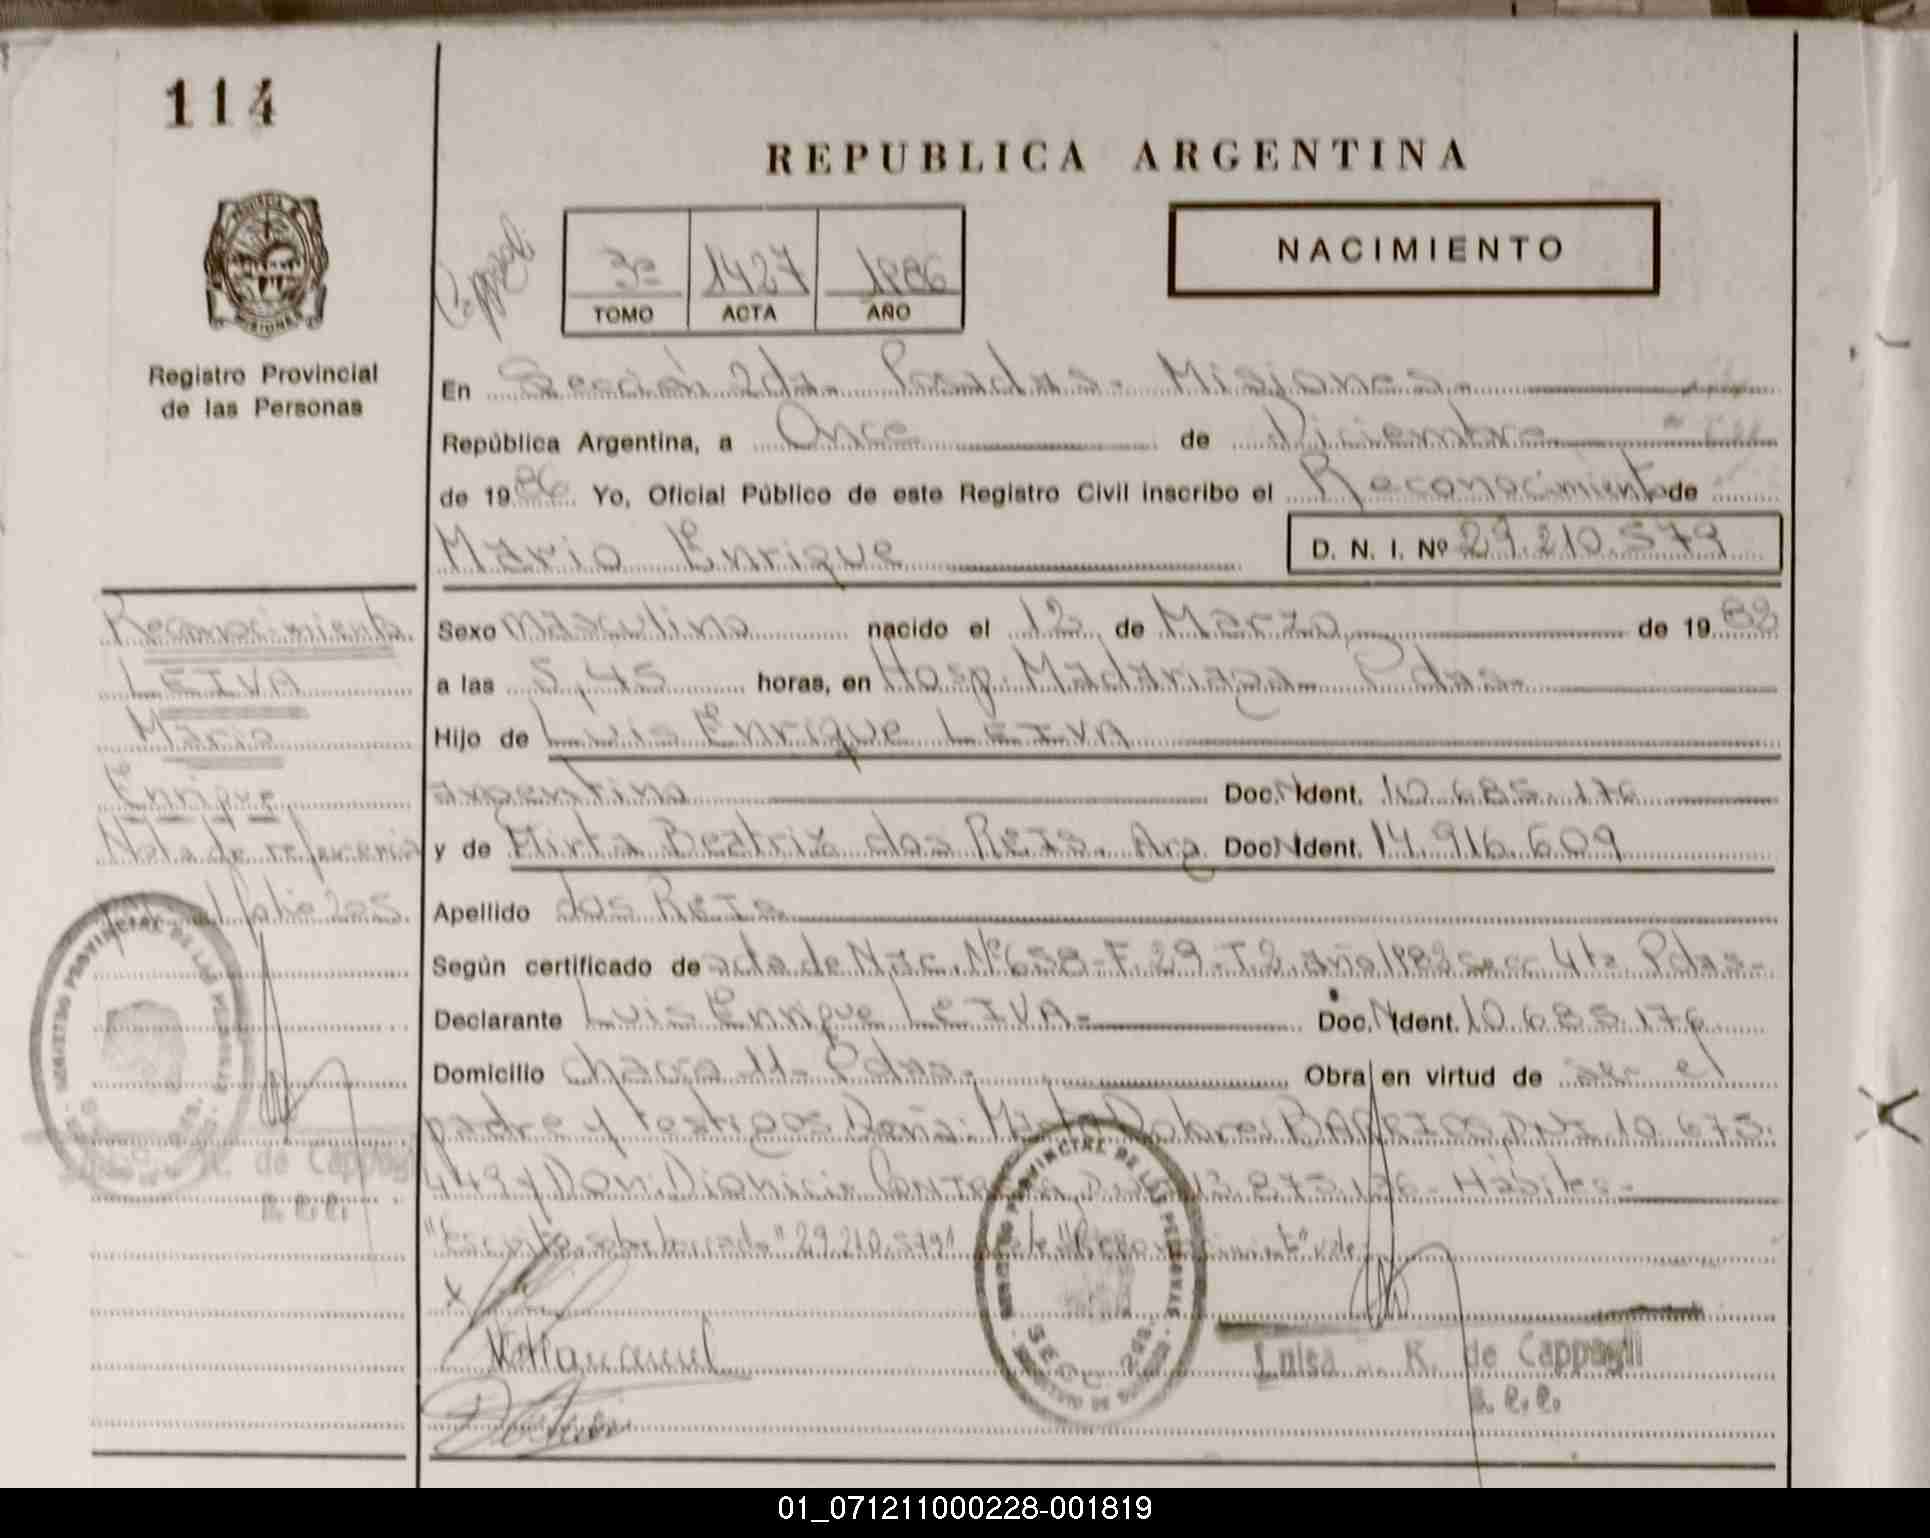 114
REPUBLICA ARGENTINA
NACIMIENTO
3ª 1427 1986
TOMO ACTA AÑO
Registro Provincial
de las Personas
En Sección 2da. Posadas. Misiones.
República Argentina, a Once de Diciembre
de 1986 Yo, Oficial Público de este Registro Civil inscribo el Reconocimiento de
Mario Enrique D. N. I. Nº 29.210.579
Reconocimiento
LEIVA
Mario
Enrique
Nota de referencia
folio 205.
Sexo Masculino nacido el 12 de Marzo de 1982
a las 5,45 horas, en Hosp. Madariaga Pdas.
Hijo de Luis Enrique LEIVA
argentino Doc. Ident. 10.685.176
y de Mirta Beatriz dos Reis. Arg. Doc. Ident. 14.916.609
Apellido dos Reis
Según certificado de acta de Nac. Nº 658-F.29-T.2. año 1982 secc 4ta Pdas-
Declarante Luis Enrique LEIVA- Doc. Ident. 10.685.176
Domicilio chacra 11- Pdas. Obra en virtud de ser el
padre y testigos Doña: Dolores BARRIOS DNI 10.673.
449 y Don: Dionicio 13.873.136- Hábiles-
"Escrito sobreborrado" 29.210.579" vale
Luisa K. de Cappagli
SECC. 2da.
01_071211000228-001819